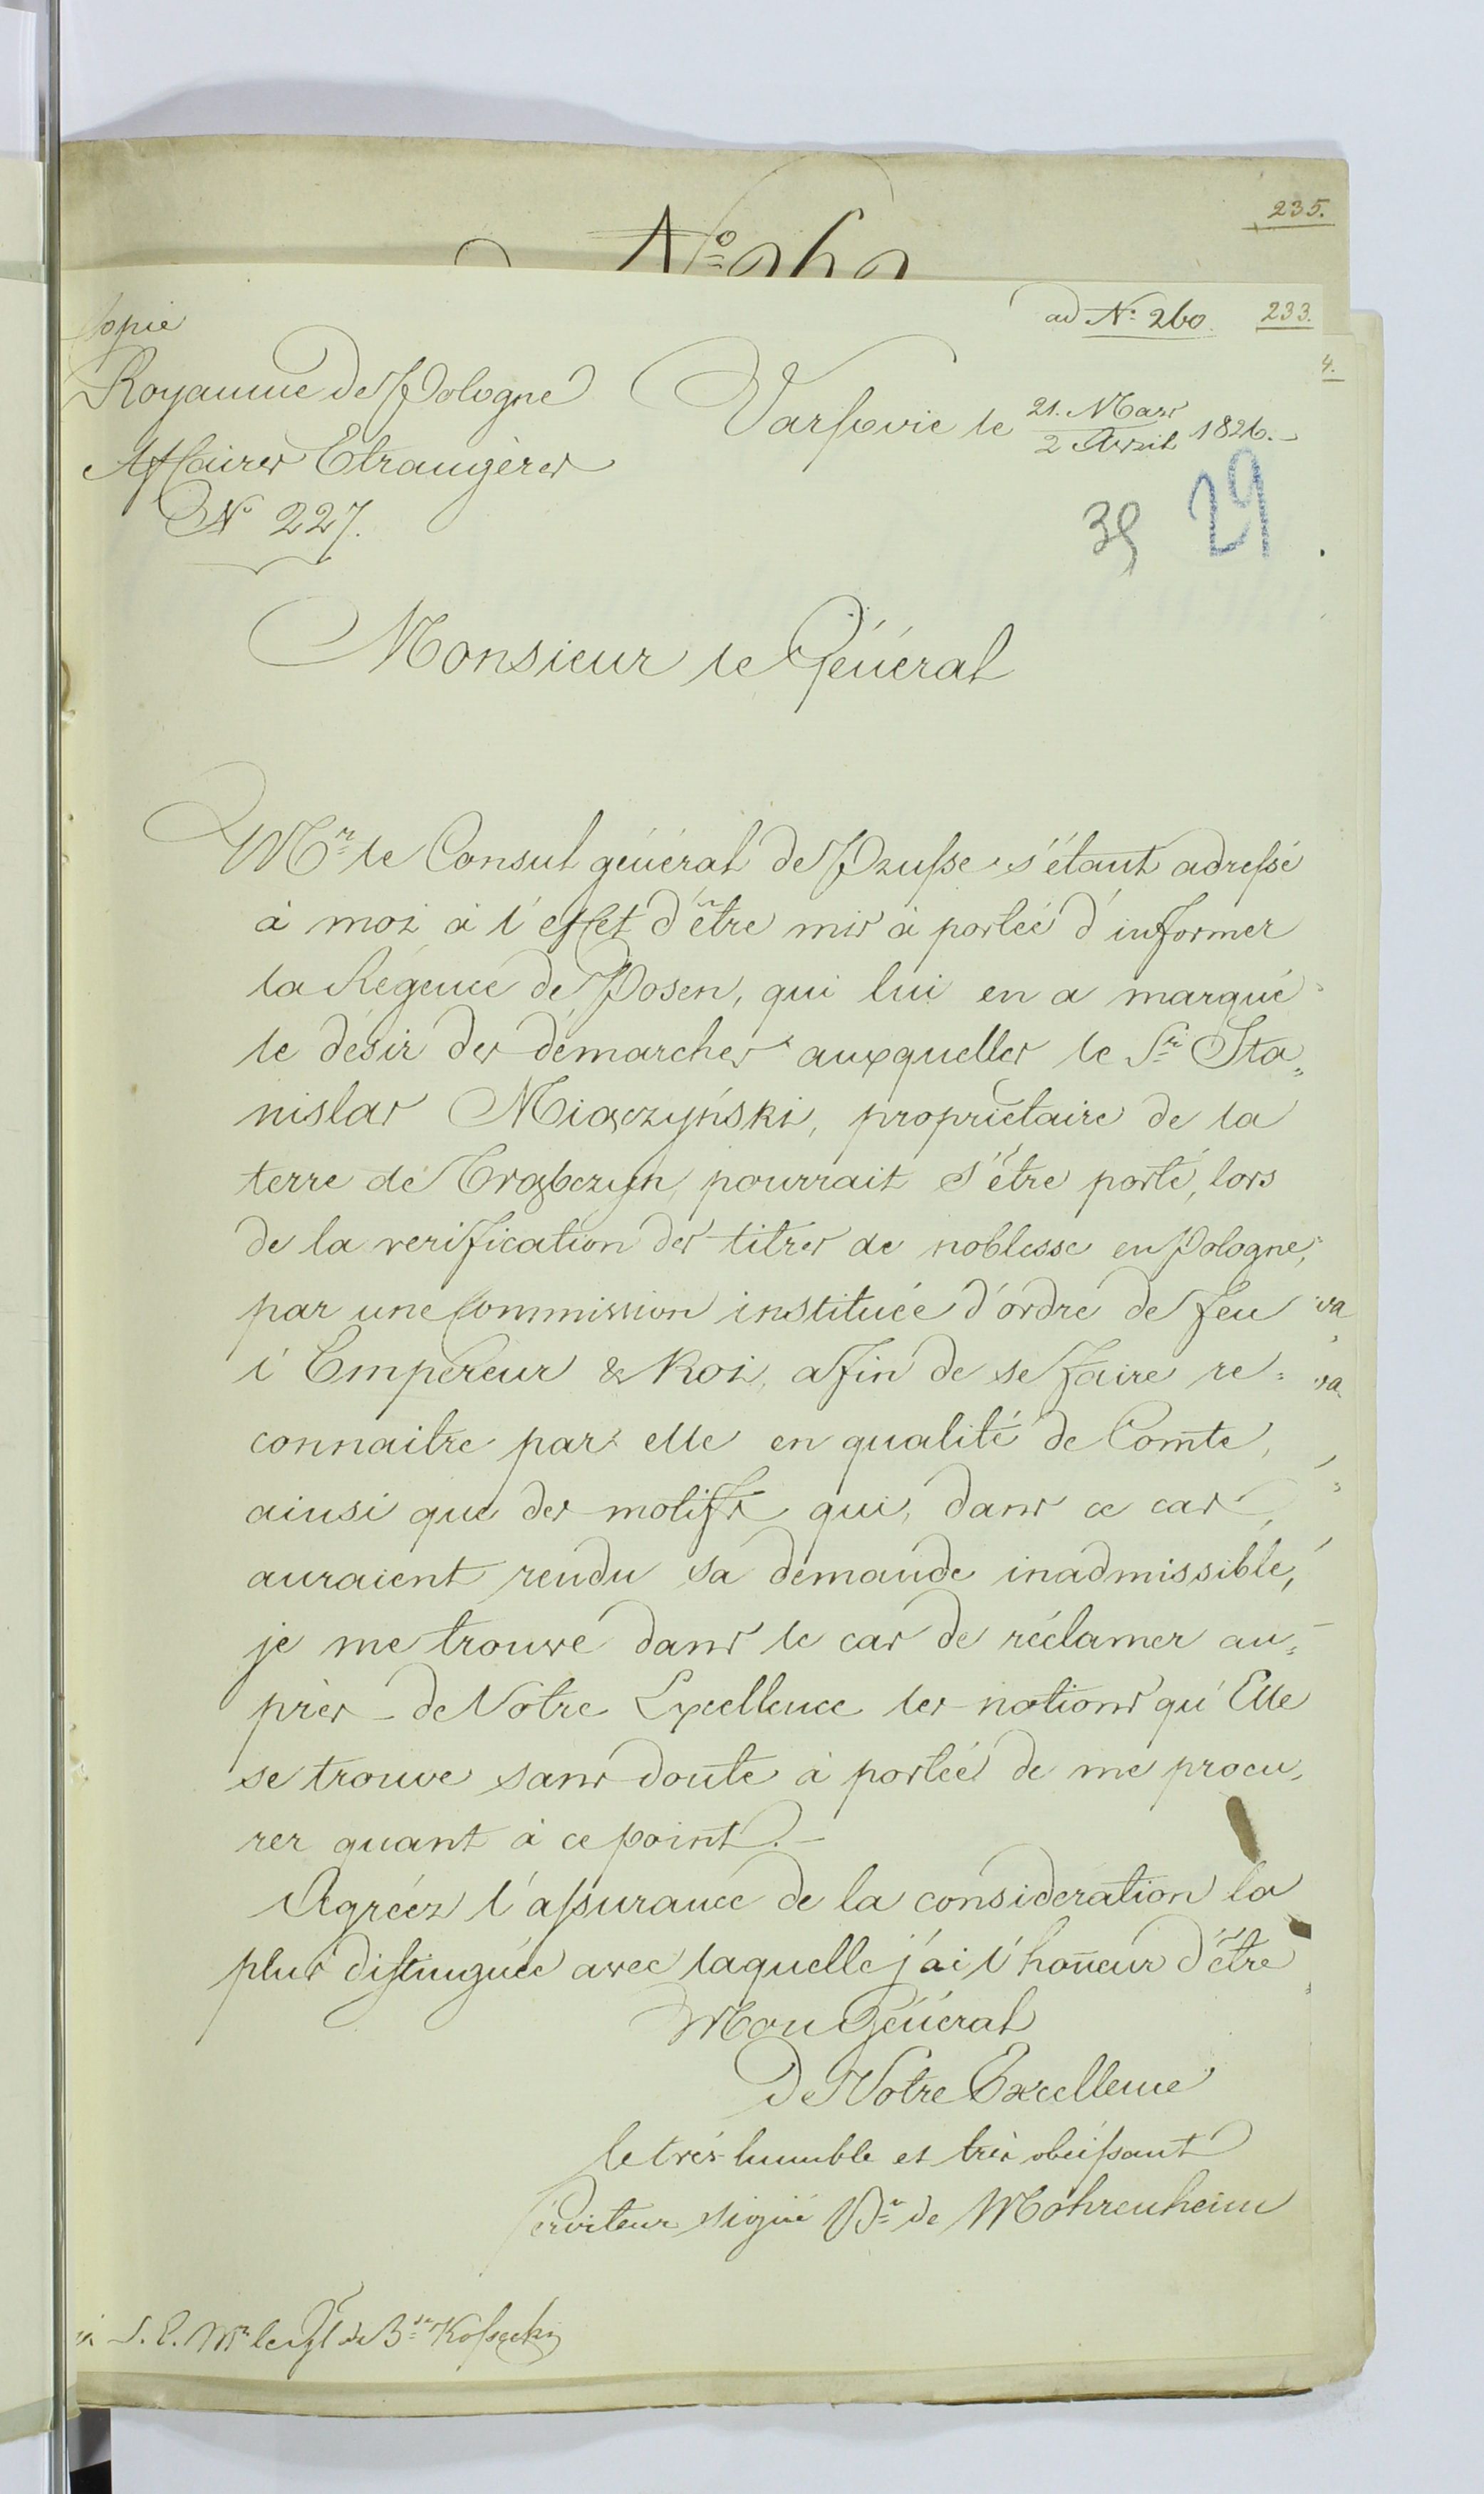 235.
Copie
ad N.o 260. 233.
4.
Royaume de Pologne
Varsovie le 21. Mars / 2 Avril 1826.
Affaires Etrangères
No 227.
39 29
Monsieur le Général
Mr. le Consul général de Prusse s'étant adressé
à moi à l'effet d'être mis à portée d'informer
la Régence de Posen, qui lui en a marqué
le désir des démarches auxquelles le Sr. Sta„
nislas Miączyński, propriétaire de la
terre de Trąbczyn, pourrait s'être porté, lors
de la verification des titres de noblesse en Pologne,
par une Commission instituée d'ordre de feu
l'Empereur & Roi, afin de se faire re=
connaitre par elle en qualité de Comte,
ainsi que des motifs qui, dans ce cas,
auraient rendu sa demande inadmissible,
je me trouve dans le cas de réclamer au=
près de Votre Excellence les notions qu'Elle
se trouve sans doute à portée de me procu„
rer quant à ce point.
Agréez l'assurance de la consideration la
plus distinguée avec laquelle j'ai l'hon̄eur d'être
Mon Général
De Votre Excellence
le très-humble et très obéissant
serviteur signé Bn. de Mohrenheim
à S. E. Mr. le Gl de Bde Kossecki